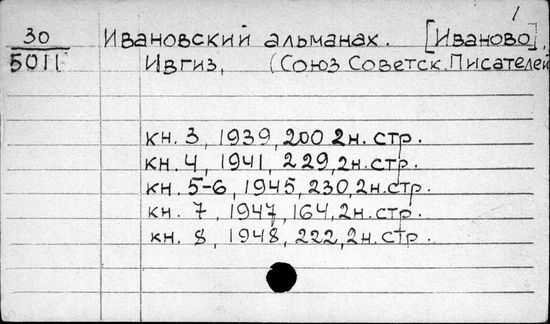 1
30 Ивановский альманах. [Иваново],
5011 Ивгиз, (Союз Советск. Писателей
кн. 3, 1939, 200 2н. стр.
кн. 4, 1941, 229, 2н. стр.
кн. 5-6, 1945, 230, 2н. стр.
кн. 7, 1947, 164, 2н. стр.
кн. 8, 1948, 222, 2н. стр.